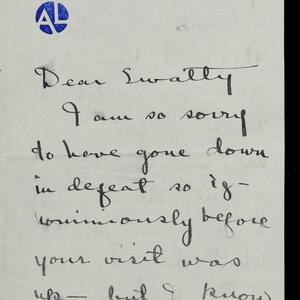 AL
Dear Swatty
I am so sorry
to have gone down
in defeat so ig-
nominiously before
your visit was
up— but I know